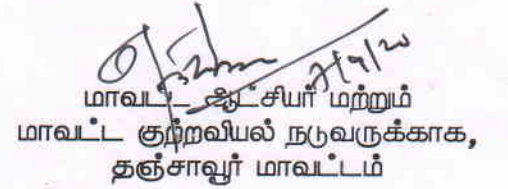 7/9/20
மாவட்ட ஆட்சியர் மற்றும்
மாவட்ட குற்றவியல் நடுவருக்காக,
தஞ்சாவூர் மாவட்டம்